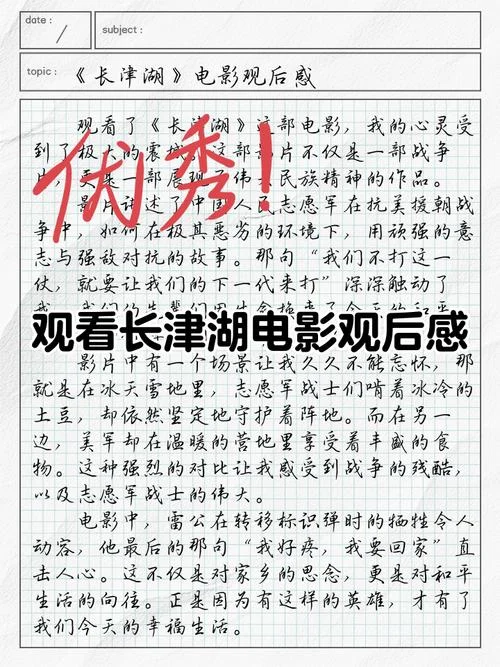 date: /
subject:
topic: 《长津湖》电影观后感
观看了《长津湖》这部电影，我的心灵受
到了极大的震撼。这部影片不仅是一部战争
片，更是一部展现了伟大民族精神的作品。
优秀!
影片讲述了中国人民志愿军在抗美援朝战
争中，如何在极其恶劣的环境下，用顽强的意
志与强敌对抗的故事。那句“我们不打这一
仗，就要让我们的下一代来打”深深触动了
今天的和平
观看长津湖电影观后感
影片中有一个场景让我久久不能忘怀，那
就是在冰天雪地里，志愿军战士们啃着冰冷的
土豆，却依然坚定地守护着阵地。而在另一
边，美军却在温暖的营地里享受着丰盛的食
物。这种强烈的对比让我感受到战争的残酷，
以及志愿军战士的伟大。
电影中，雷公在转移标识弹时的牺牲令人
动容，他最后的那句“我好疼，我要回家”直
击人心。这不仅是对家乡的思念，更是对和平
生活的向往。正是因为有这样的英雄，才有了
我们今天的幸福生活。